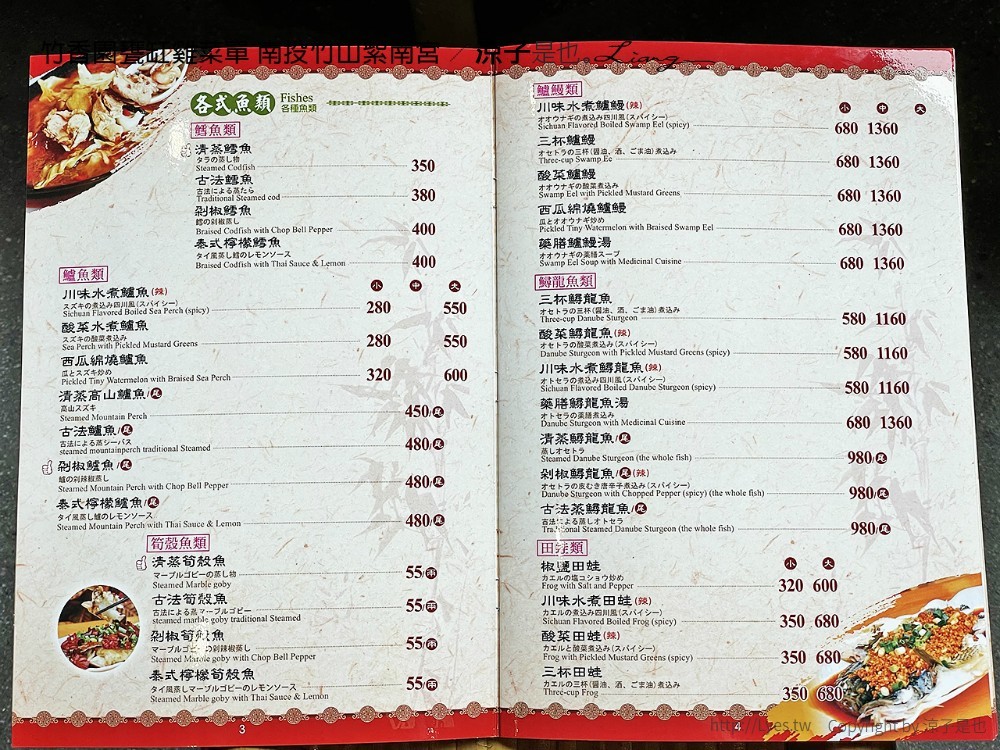 竹香園甕缸雞菜單 南投竹山紫南宮 / 涼子是也 Ling
各式魚類 Fishes
各種魚類
鱈魚類
清蒸鱈魚
タラの蒸し物
Steamed Codfish 350
古法鱈魚
古法による蒸たら
Traditional Steamed cod 380
剁椒鱈魚
鱈の剁椒蒸し
Braised Codfish with Chop Bell Pepper 400
泰式檸檬鱈魚
タイ風蒸し鱈のレモンソース
Braised Codfish with Thai Sauce & Lemon 400
鱸魚類
小 中 大
川味水煮鱸魚(辣)
スズキの煮込み四川風(スパイシー)
Sichuan Flavored Boiled Sea Perch (spicy) 280 550
酸菜水煮鱸魚
スズキの酸菜煮込み
Sea Perch with Pickled Mustard Greens 280 550
西瓜綿燒鱸魚
瓜とスズキ炒め
Pickled Tiny Watermelon with Braised Sea Perch 320 600
清蒸高山鱸魚/尾
高山スズキ
Steamed Mountain Perch 450/尾
古法鱸魚/尾
古法による蒸シーバス
steamed mountainperch traditional Steamed 480/尾
剁椒鱸魚/尾
鱸の剁辣椒蒸し
Steamed Mountain Perch with Chop Bell Pepper 480/尾
泰式檸檬鱸魚/尾
タイ風蒸し鱸のレモンソース
Steamed Mountain Perch with Thai Sauce & Lemon 480/尾
筍殼魚類
清蒸筍殼魚
マーブルゴビーの蒸し物 55/兩
Steamed Marble goby
古法筍殼魚
古法による蒸マーブルゴビー 55/兩
steamed marble goby traditional Steamed
剁椒筍殼魚
マーブルゴビーの剁辣椒蒸し 55/兩
Steamed Marble goby with Chop Bell Pepper
泰式檸檬筍殼魚
タイ風蒸しマーブルゴビーのレモンソース 55/兩
Steamed Marble goby with Thai Sauce & Lemon
3
鱸鰻類
小 中 大
川味水煮鱸鰻(辣)
オオウナギの煮込み四川風(スパイシー)
Sichuan Flavored Boiled Swamp Eel (spicy) 680 1360
三杯鱸鰻
オセトラの三杯(醤油、酒、ごま油)煮込み
Three-cup Swamp Ee 680 1360
酸菜鱸鰻
オオウナギの酸菜煮込み
Swamp Eel with Pickled Mustard Greens 680 1360
西瓜綿燒鱸鰻
瓜とオオウナギ炒め
Pickled Tiny Watermelon with Braised Swamp Eel 680 1360
藥膳鱸鰻湯
オオウナギの薬膳スープ
Swamp Eel Soup with Medicinal Cuisine 680 1360
鱘龍魚類
三杯鱘龍魚
オセトラの三杯(醤油、酒、ごま油)煮込み
Three-cup Danube Sturgeon 580 1160
酸菜鱘龍魚(辣)
オセトラの酸菜煮込み(スパイシー)
Danube Sturgeon with Pickled Mustard Greens (spicy) 580 1160
川味水煮鱘龍魚(辣)
オセトラの煮込み四川風(スパイシー)
Sichuan Flavored Boiled Danube Sturgeon (spicy) 580 1160
藥膳鱘龍魚湯
オセトラの薬膳煮込み
Danube Sturgeon with Medicinal Cuisine 680 1360
清蒸鱘龍魚/尾
蒸しオセトラ
Steamed Danube Sturgeon (the whole fish) 980/尾
剁椒鱘龍魚/尾(辣)
オセトラの皮むき唐辛子煮込み(スパイシー)
Danube Sturgeon with Chopped Pepper (spicy) (the whole fish) 980/尾
古法蒸鱘龍魚/尾
古法による蒸しオトセラ
Traditional Steamed Danube Sturgeon (the whole fish) 980/尾
田蛙類
小 大
椒鹽田蛙
カエルの塩コショウ炒め
Frog with Salt and Pepper 320 600
川味水煮田蛙(辣)
カエルの煮込み四川風(スパイシー)
Sichuan Flavored Boiled Frog (spicy) 350 680
酸菜田蛙(辣)
カエルと酸菜煮込み(スパイシー)
Frog with Pickled Mustard Greens (spicy) 350 680
三杯田蛙
カエルの三杯(醤油、酒、ごま油)煮込み
Three-cup Frog 350 680
http://Lres.tw Copyright by 涼子是也